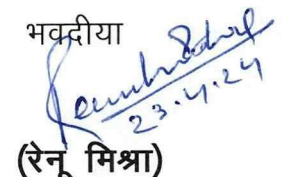 भवदीया
23.4.24
(रेनू मिश्रा)